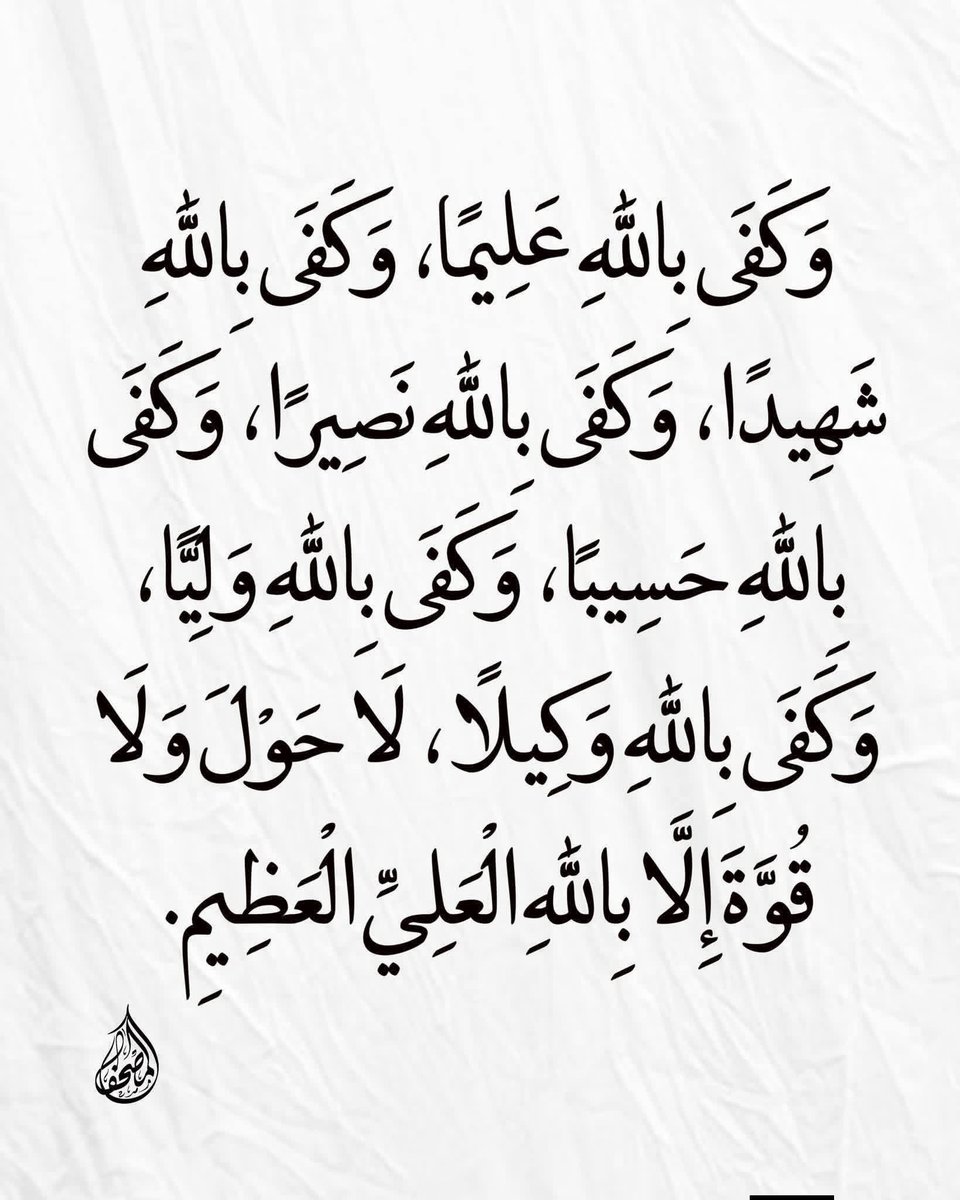 وَكَفَى بِاللهِ عَلِيمًا، وَكَفَى بِاللهِ
شَهِيدًا، وَكَفَى بِاللهِ نَصِيرًا، وَكَفَى
بِاللهِ حَسِيبًا، وَكَفَى بِاللهِ وَلِيًّا،
وَكَفَى بِاللهِ وَكِيلًا، لَا حَوْلَ وَلَا
قُوَّةَ إِلَّا بِاللهِ الْعَلِيِّ الْعَظِيمِ.
المصحف